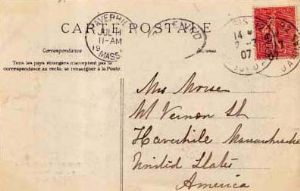 CARTE POSTALE
HAVERHILL
JUL 11
11-AM
19
MASS.
Correspondance
Tous les pays étrangers n'acceptent pas la
correspondance au recto, se renseigner à la Poste
14
07
Mrs Morse
Mt Vernon St
Haverhile Massachusetts
Unitid States
America